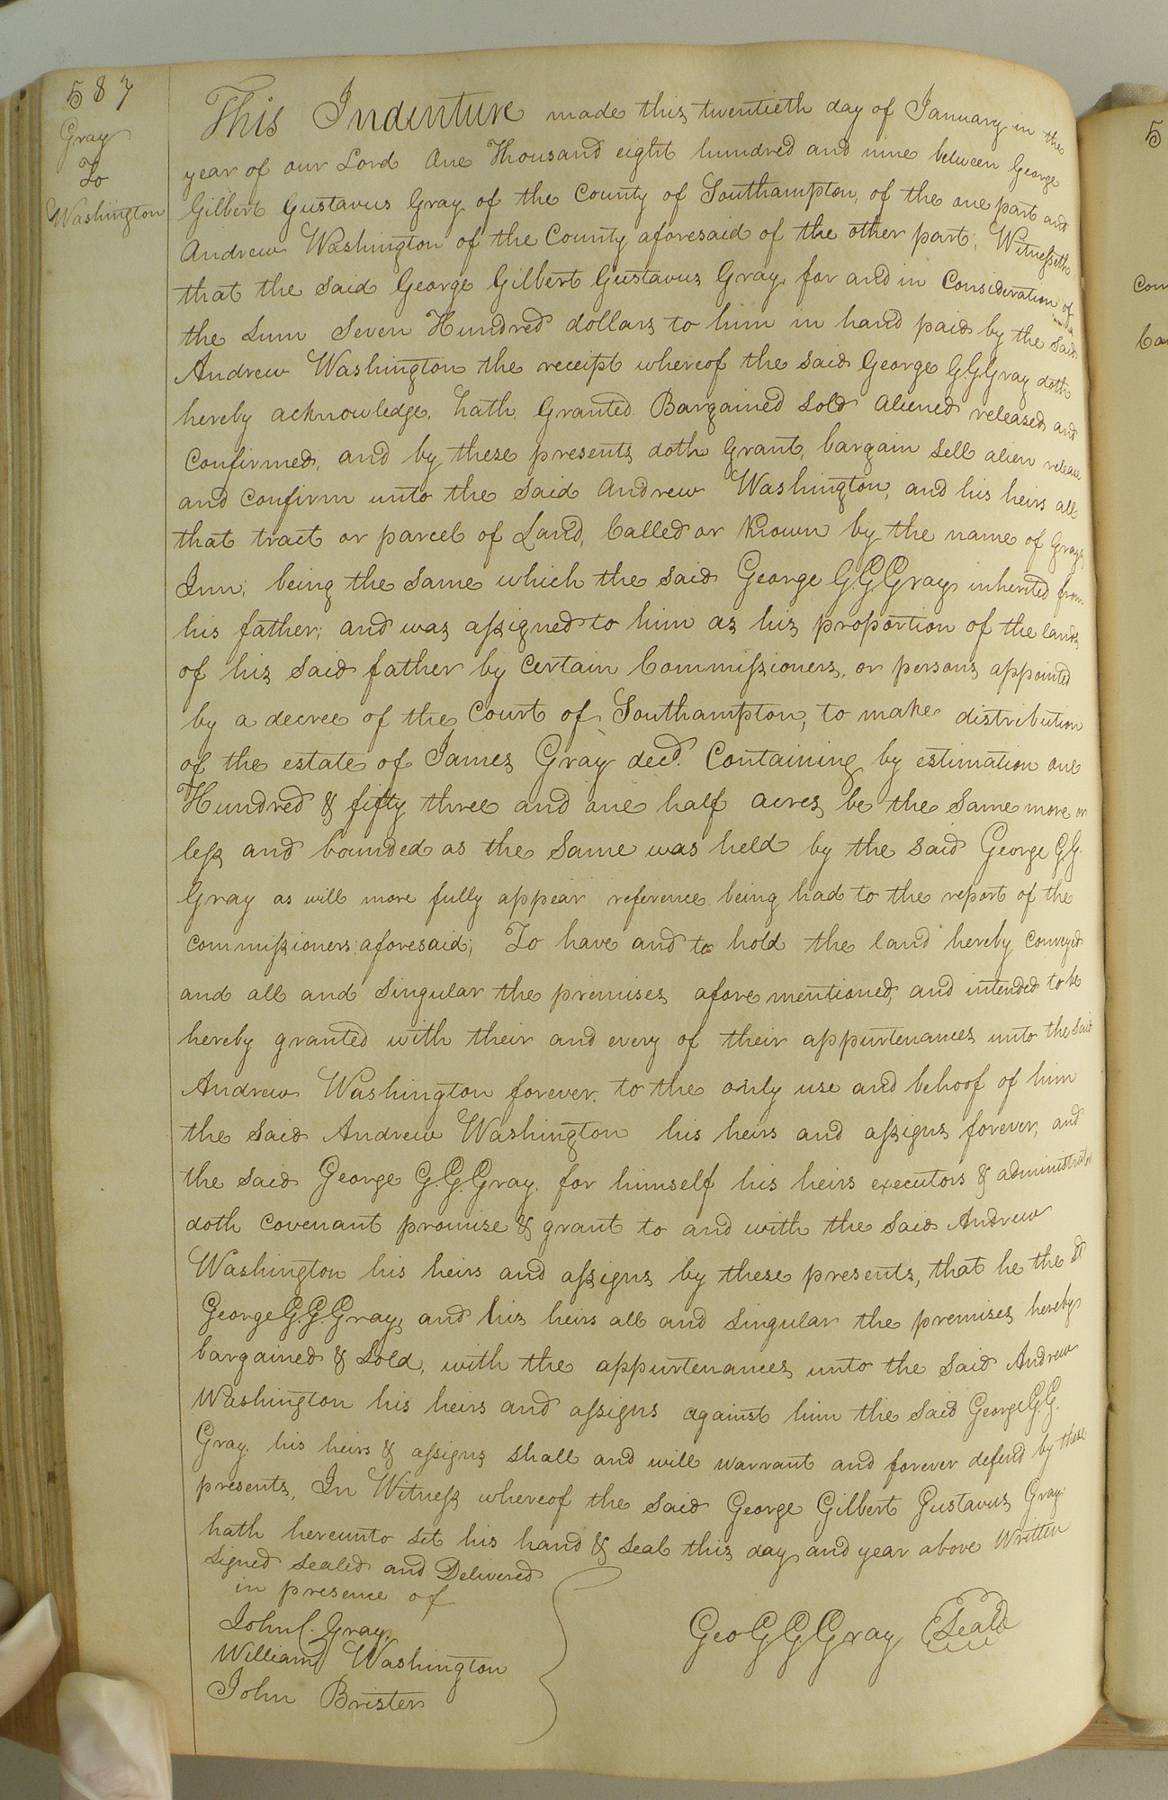 587
Gray
To
Washington
This Indenture made this twentieth day of January in the
year of our Lord One Thousand eight hundred and nine between George
Gilbert Gustavus Gray of the County of Southampton, of the one part and
Andrew Washington of the County aforesaid of the other part; Witnesseth
that the said George Gilbert Gustavus Gray, for and in Consideration of
the sum Seven Hundred dollars to him in hand paid by the said
Andrew Washington the receipt whereof the said George G.G.Gray doth
hereby acknowledge, hath Granted Bargained Sold aliened released and
Confirmed, and by these presents doth Grant, bargain Sell alien release
and Confirm unto the said Andrew Washington, and his heirs all
that tract or parcel of Land, Called or Known by the name of Grays
Inn; being the same which the said George G.G.Gray inherited from
his father; and was assigned to him as his proportion of the lands
of his said father by Certain Commissioners, or persons appointed
by a decree of the Court of Southampton, to make distribution
of the estate of James Gray decd. Containing by estimation one
Hundred & fifty three and one half acres, be the same more or
less and bounded as the same was held by the said George G.G.
Gray as will more fully appear reference being had to the report of the
commissioners aforesaid; To have and to hold the land hereby conveyed
and all and singular the premises afore mentioned, and intended to be
hereby granted with their and every of their appurtenances unto the said
Andrew Washington forever, to the only use and behoof of him
the said Andrew Washington his heirs and assigns forever, and
the said George G.G.Gray, for himself his heirs executors & administrators
doth covenant promise & grant to and with the said Andrew
Washington his heirs and assigns by these presents, that he the sd
George G.G.Gray, and his heirs all and singular the premises hereby
bargained & Sold, with the appurtenances unto the said Andrew
Washington his heirs and assigns against him the said George G.G.
Gray. his heirs & assigns shall and will warrant and forever defend by these
presents, In Witness whereof the said George Gilbert Gustavus Gray
hath hereunto set his hand & seal this day and year above Written
Signed sealed and Delivered
in presence of
John C. Gray
William Washington
John Brister
Geo G G Gray Seal